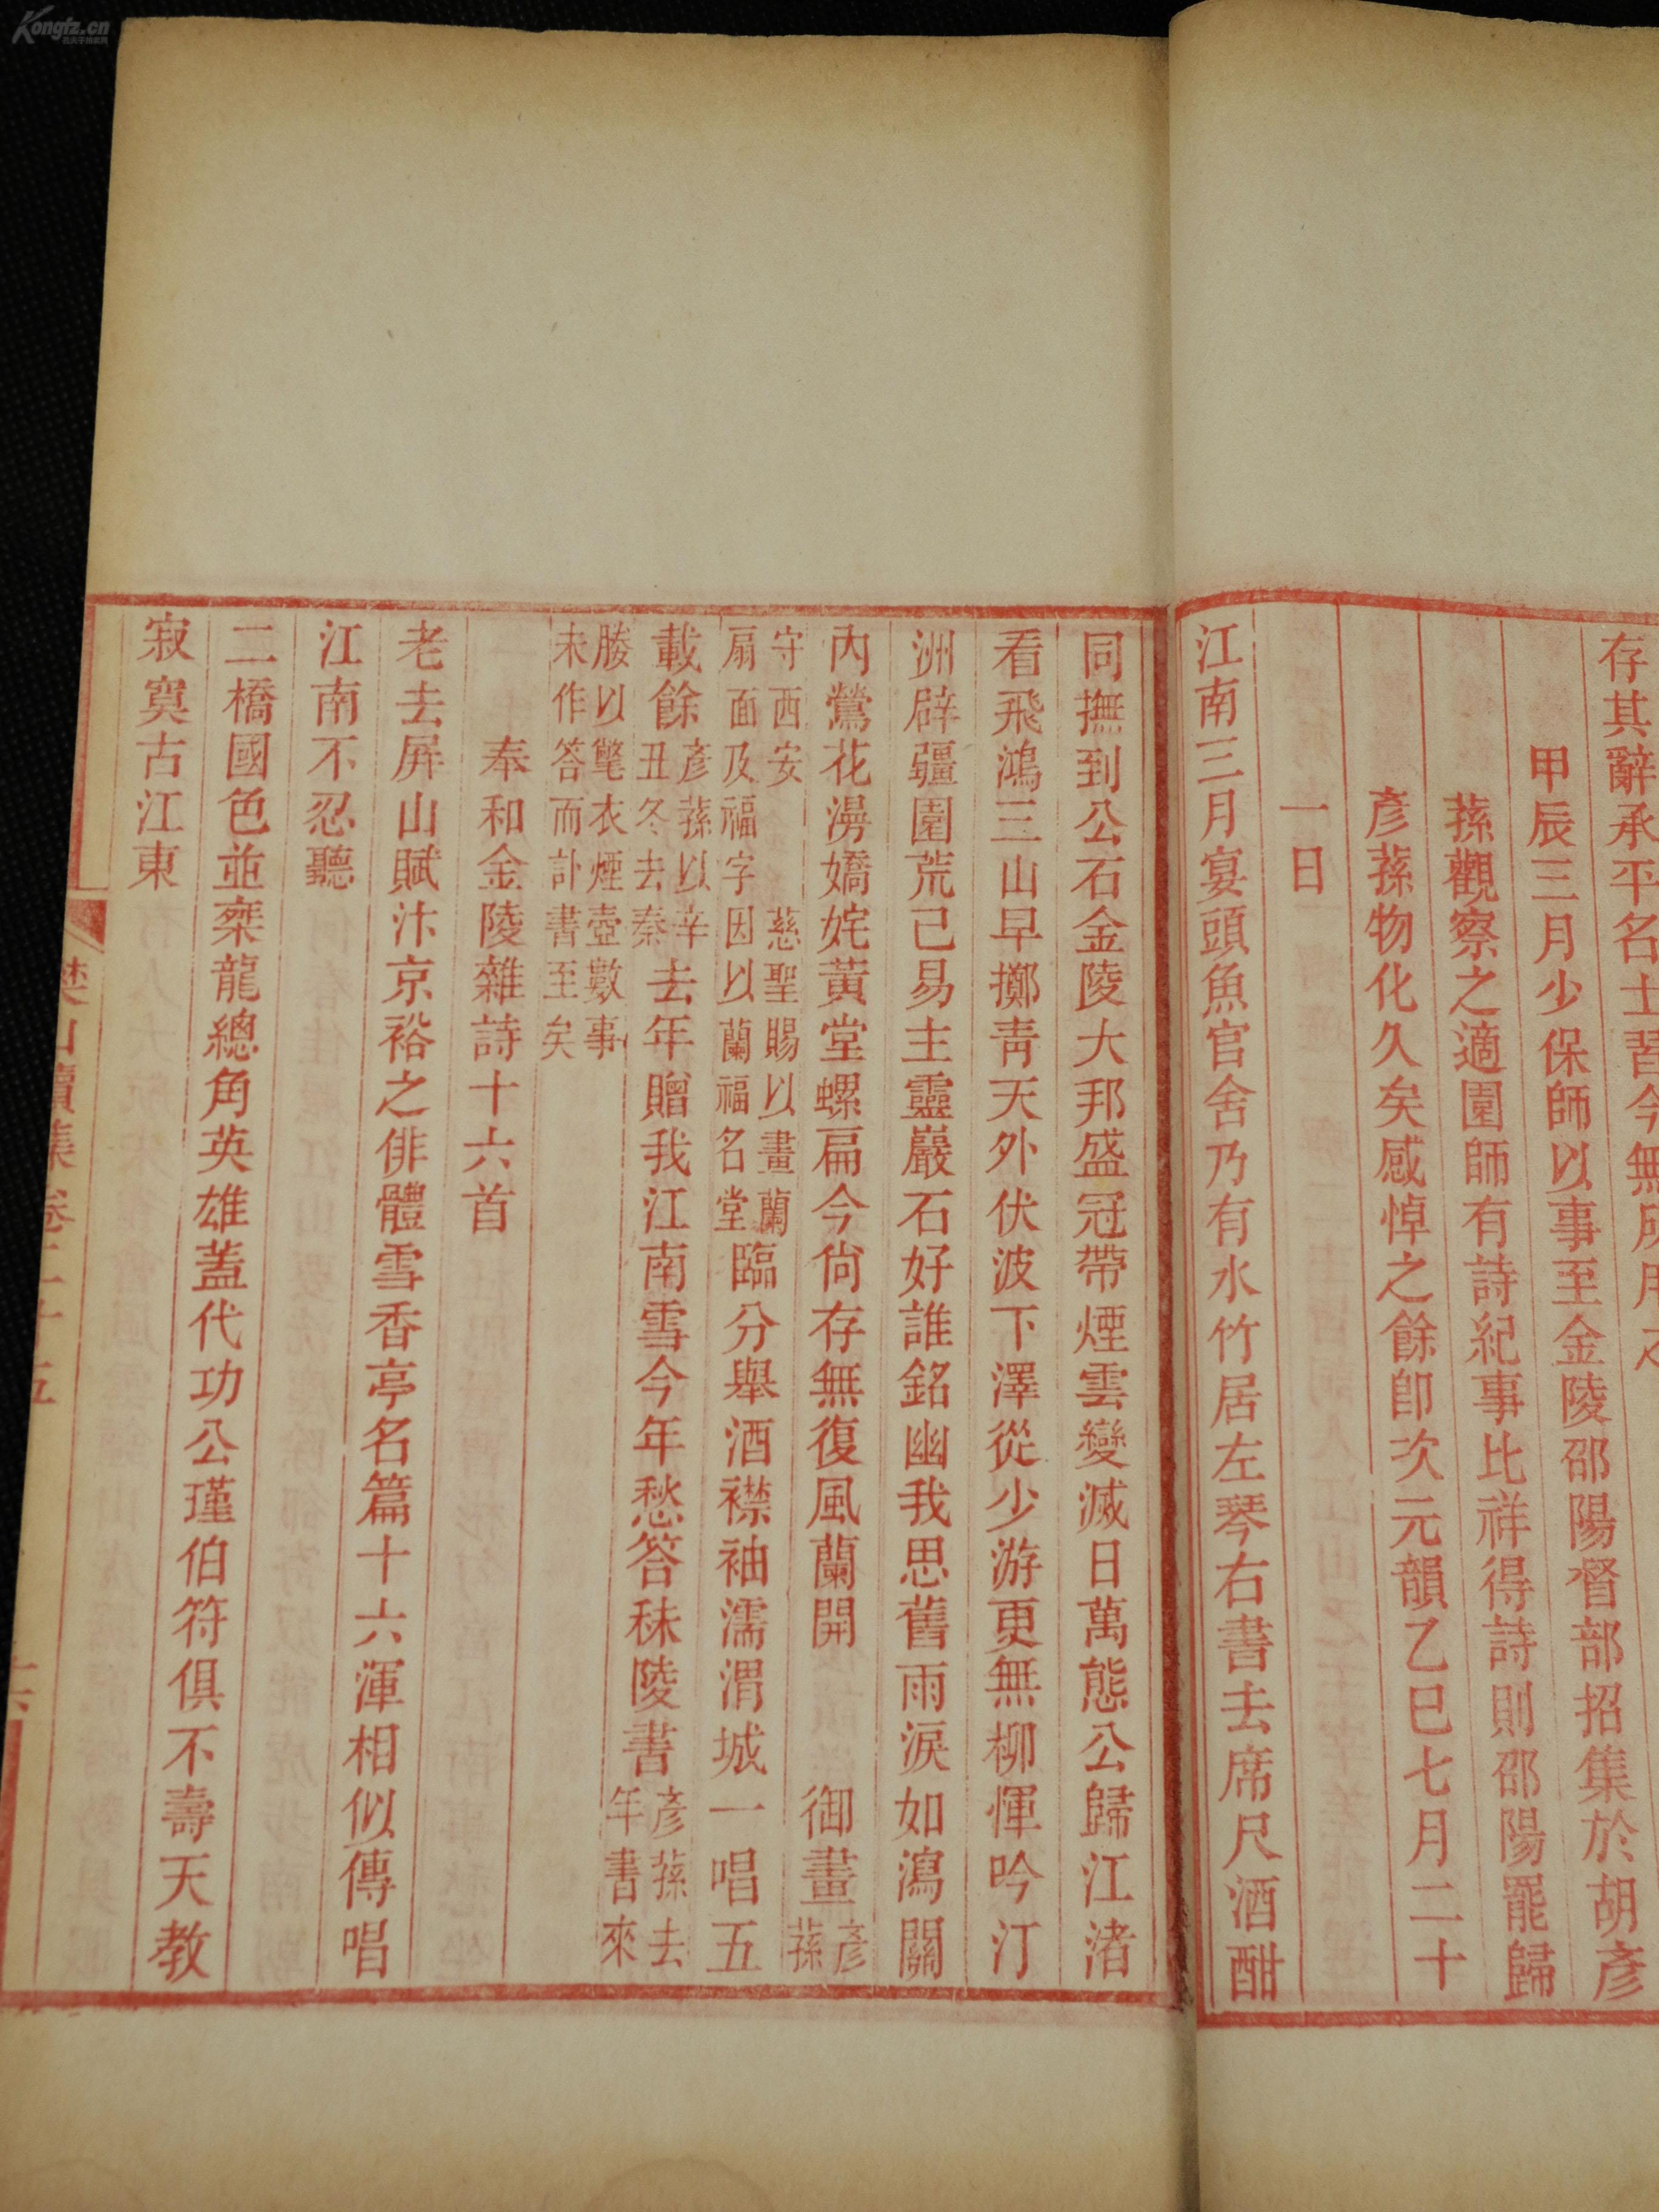 Kongfz.cn
存其辭承平名士習今無所用之
甲辰三月少保師以事至金陵邵陽督部招集於胡彥
蓀觀察之適園師有詩紀事比祥得詩則邵陽罷歸
彥蓀物化久矣感悼之餘卽次元韻乙巳七月二十
一日
江南三月宴頭魚官舍乃有水竹居左琴右書去席尺酒酣
同撫到公石金陵大邦盛冠帶煙雲變滅日萬態公歸江渚
看飛鴻三山早擲青天外伏波下澤從少游更無柳惲吟汀
洲辟疆園荒已易主靈巖石好誰銘幽我思舊雨淚如瀉關
內鶯花漫嬌姹黃堂螺扁今尙存無復風蘭開 御畫彥蓀
守西安 慈聖賜以畫蘭
扇面及福字因以蘭福名堂
臨分舉酒襟袖濡渭城一唱五
載餘彥蓀以辛丑冬去秦去年贈我江南雪今年愁答秣陵書彥蓀去年書來
勝以氅衣煙壺數事
未作答而訃書至矣
奉和金陵雜詩十六首
老去屛山賦汴京裕之俳體雪香亭名篇十六渾相似傳唱
江南不忍聽
二橋國色並乘龍總角英雄蓋代功公瑾伯符俱不壽天教
寂寞古江東
樊山續集卷二十五
十六